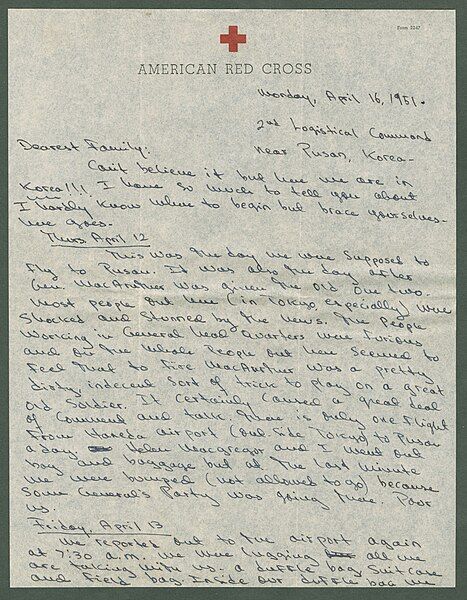 Form 2247
AMERICAN RED CROSS
Monday, April 16, 1951.
2nd Logistical Command
near Pusan, Korea-
Dearest Family:
Can't believe it but here we are in
Korea!!! I have so much to tell you about
I hardly know where to begin but brace yourselves-
here goes.
Thurs April 12
This was the day we were supposed to
fly to Pusan. It was also the day after
Gen. MacArthur was given the old one two.
Most people out here (in Tokyo, especially) were
shocked and stunned by the news. The people
working in General Head Quarters were furious
and on the whole people out here seemed to
feel that to fire MacArthur was a pretty
dirty, indecent sort of trick to play on a great
old soldier. It certainly caused a great deal
of comment and talk. There is only one flight
from Haneda airport (outside Tokyo) to Pusan
a day. Helen Macgregor and I went out
bag and baggage but at the last minute
we were bumped (not allowed to go) because
some General's Party was going there. Poor
us.
Friday, April 13
We reported out to the airport again
at 7:30 a.m. We were lugging all we
are taking with us. a duffle bag, suitcase
and field bag. Inside our duffle bag we